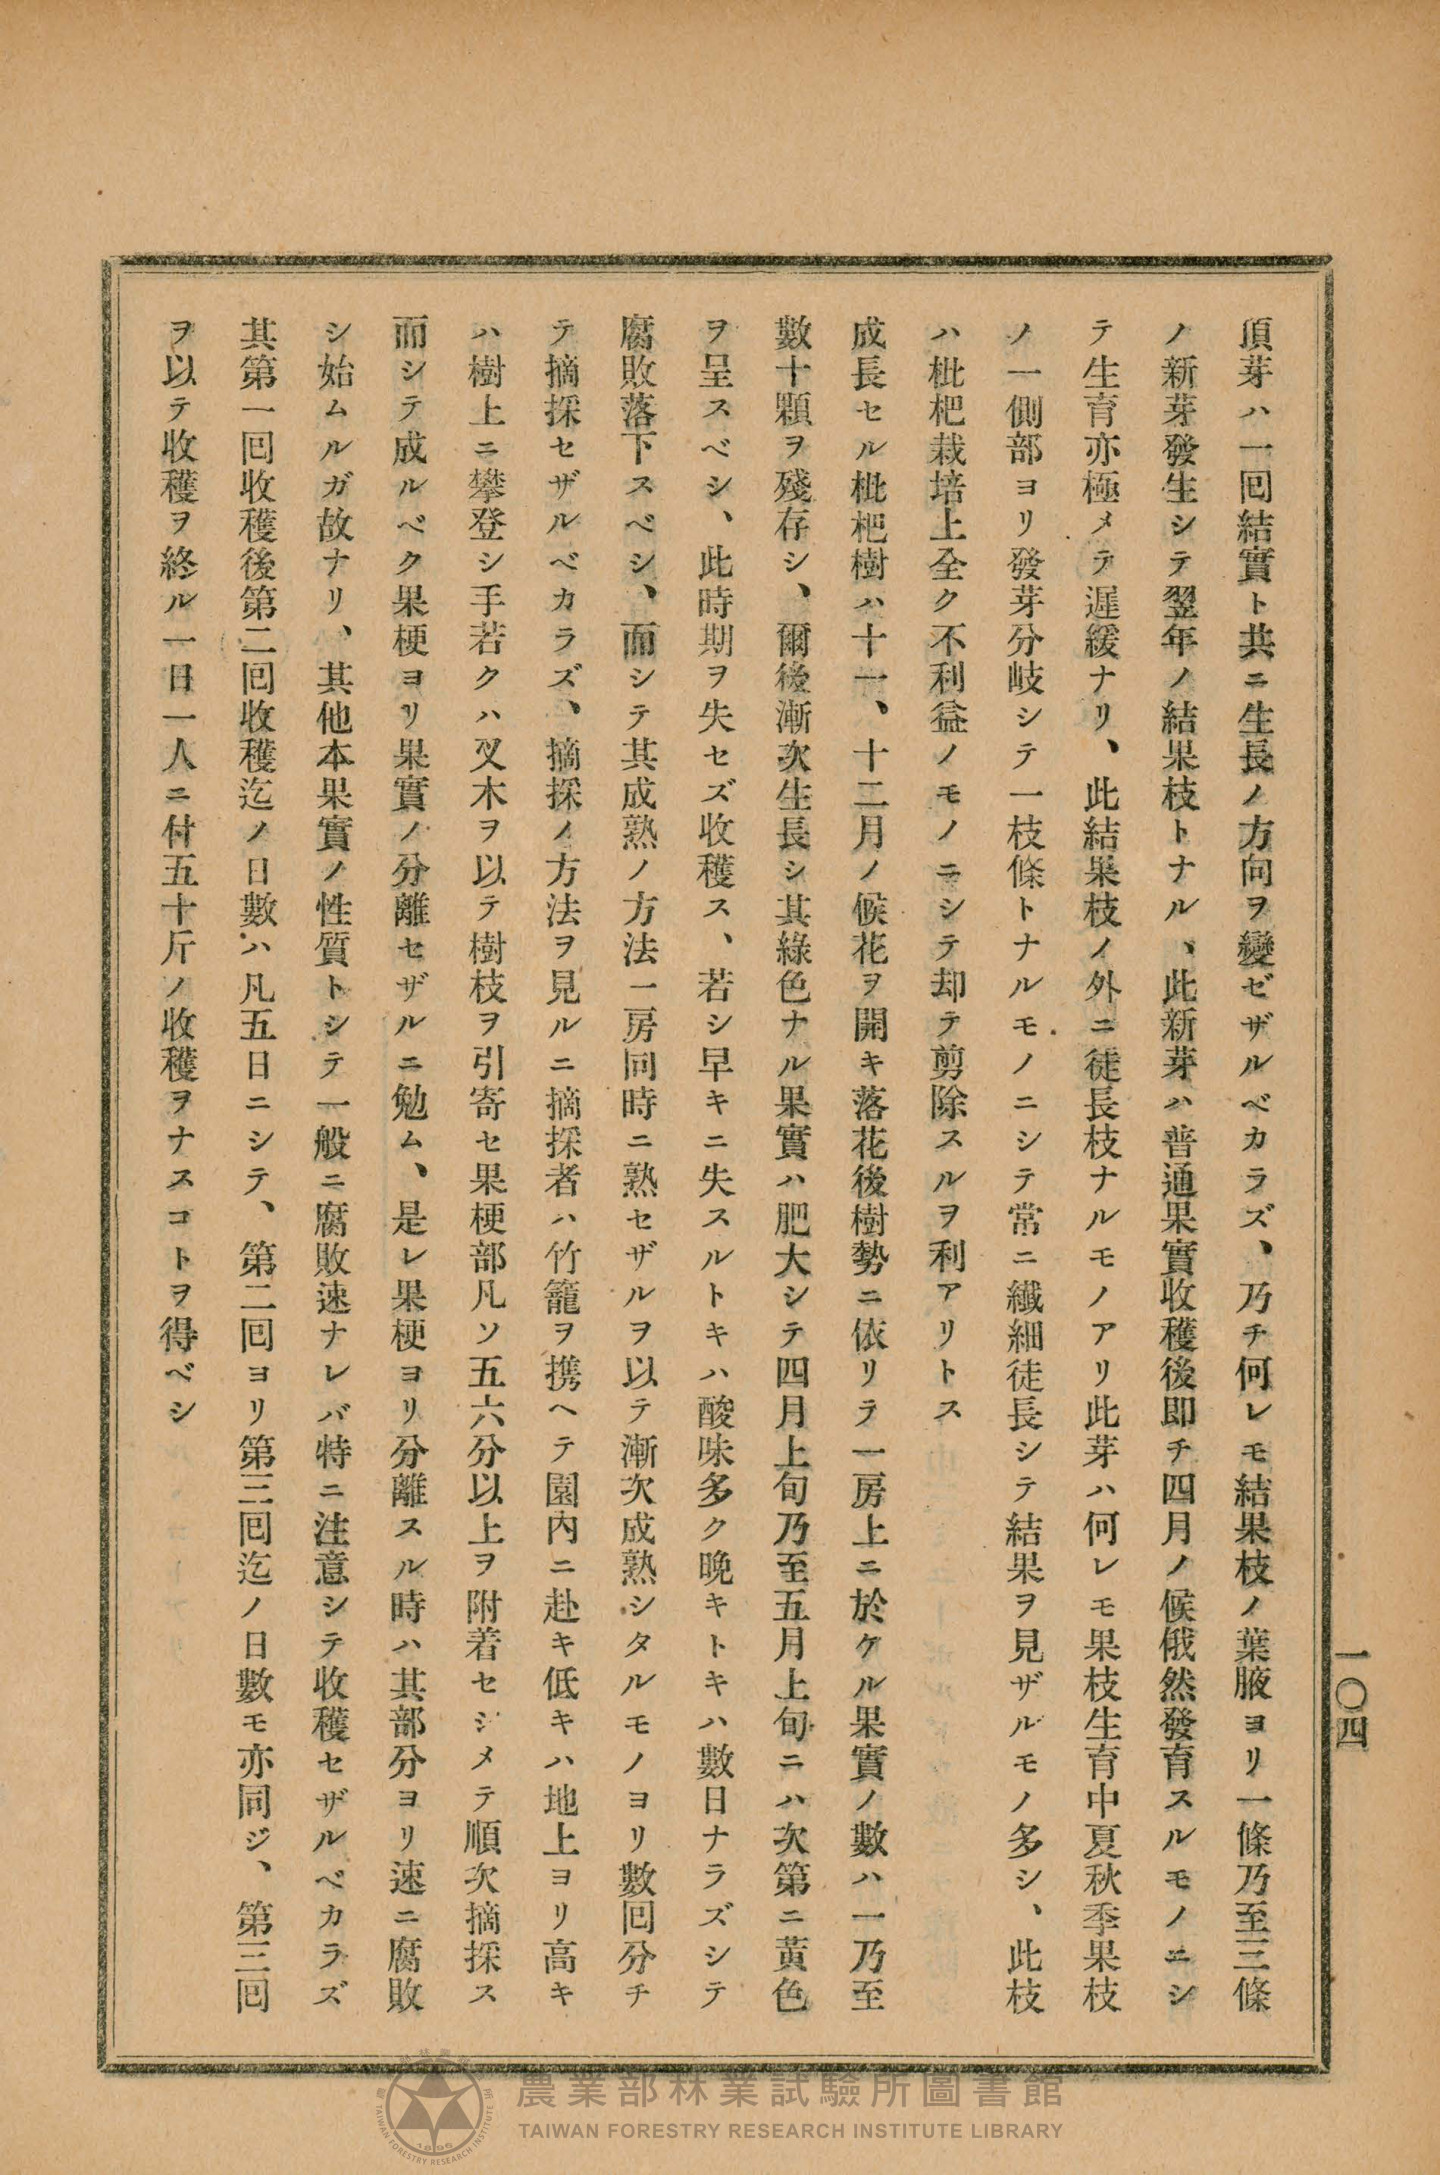 頂芽ハ一囘結實ト共ニ生長ノ方向ヲ變ゼザルベカラズ、乃チ何レモ結果枝ノ葉腋ヨリ一條乃至三條
ノ新芽發生シテ翌年ノ結果枝トナル、此新芽ハ普通果實收穫後即チ四月ノ候俄然發育スルモノニシ
テ生育亦極メテ遲緩ナリ、此結果枝ノ外ニ徒長枝ナルモノアリ此芽ハ何レモ果枝生育中夏秋季果枝
ノ一側部ヨリ發芽分岐シテ一枝條トナルモノニシテ常ニ纖細徒長シテ結果ヲ見ザルモノ多シ、此枝
ハ枇杷栽培上全ク不利益ノモノニシテ却テ剪除スルヲ利アリトス
成長セル枇杷樹ハ十一、十二月ノ候花ヲ開キ落花後樹勢ニ依リテ一房上ニ於ケル果實ノ數ハ一乃至
數十顆ヲ殘存シ、爾後漸次生長シ其綠色ナル果實ハ肥大シテ四月上旬乃至五月上旬ニハ次第ニ黃色
ヲ呈スベシ、此時期ヲ失セズ收穫ス、若シ早キニ失スルトキハ酸味多ク晩キトキハ數日ナラズシテ
腐敗落下スベシ、而シテ其成熟ノ方法一房同時ニ熟セザルヲ以テ漸次成熟シタルモノヨリ數囘分チ
テ摘採セザルベカラズ、摘採ノ方法ヲ見ルニ摘採者ハ竹籠ヲ携ヘテ園內ニ赴キ低キハ地上ヨリ高キ
ハ樹上ニ攀登シ手若クハ叉木ヲ以テ樹枝ヲ引寄セ果梗部凡ソ五六分以上ヲ附着セシメテ順次摘採ス
而シテ成ルベク果梗ヨリ果實ノ分離セザルニ勉ム、是レ果梗ヨリ分離スル時ハ其部分ヨリ速ニ腐敗
シ始ムルガ故ナリ、其他本果實ノ性質トシテ一般ニ腐敗速ナレバ特ニ注意シテ收穫セザルベカラズ
其第一囘收穫後第二囘收穫迄ノ日數ハ凡五日ニシテ、第二囘ヨリ第三囘迄ノ日數モ亦同ジ、第三囘
ヲ以テ收穫ヲ終ル一日一人ニ付五十斤ノ收穫ヲナスコトヲ得ベシ
一〇四
農業部林業試驗所圖書館
TAIWAN FORESTRY RESEARCH INSTITUTE LIBRARY